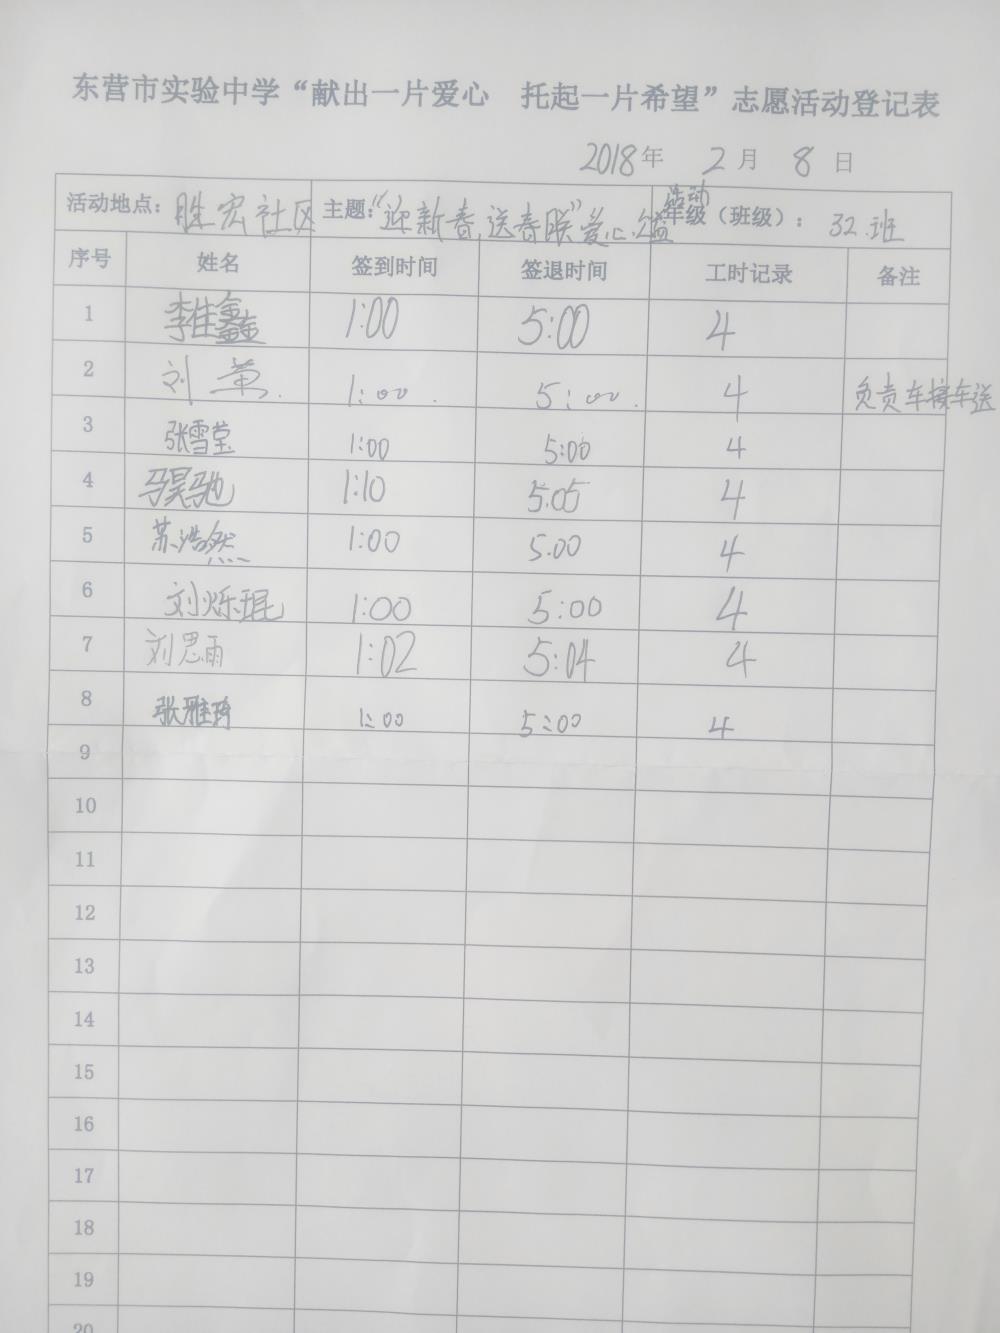 东营市实验中学“献出一片爱心 托起一片希望”志愿活动登记表
2018年 2月 8日
活动地点：胜宏社区 主题：“迎新春，送春联”爱心公益活动 年级（班级）：32.班
序号 姓名 签到时间 签退时间 工时记录 备注
1 李佳鑫 1:00 5:00 4
2 刘 1:00. 5:00. 4 负责车接车送
3 张雪莹 1:00 5:00 4
4 马昊驰 1:10 5.05 4
5 苏浩然 1:00 5.00 4
6 刘烁琨 1:00 5:00 4
7 刘思雨 1:02 5:04 4
8 张雅琦 1:00 5:00 4
9
10
11
12
13
14
15
16
17
18
19
20